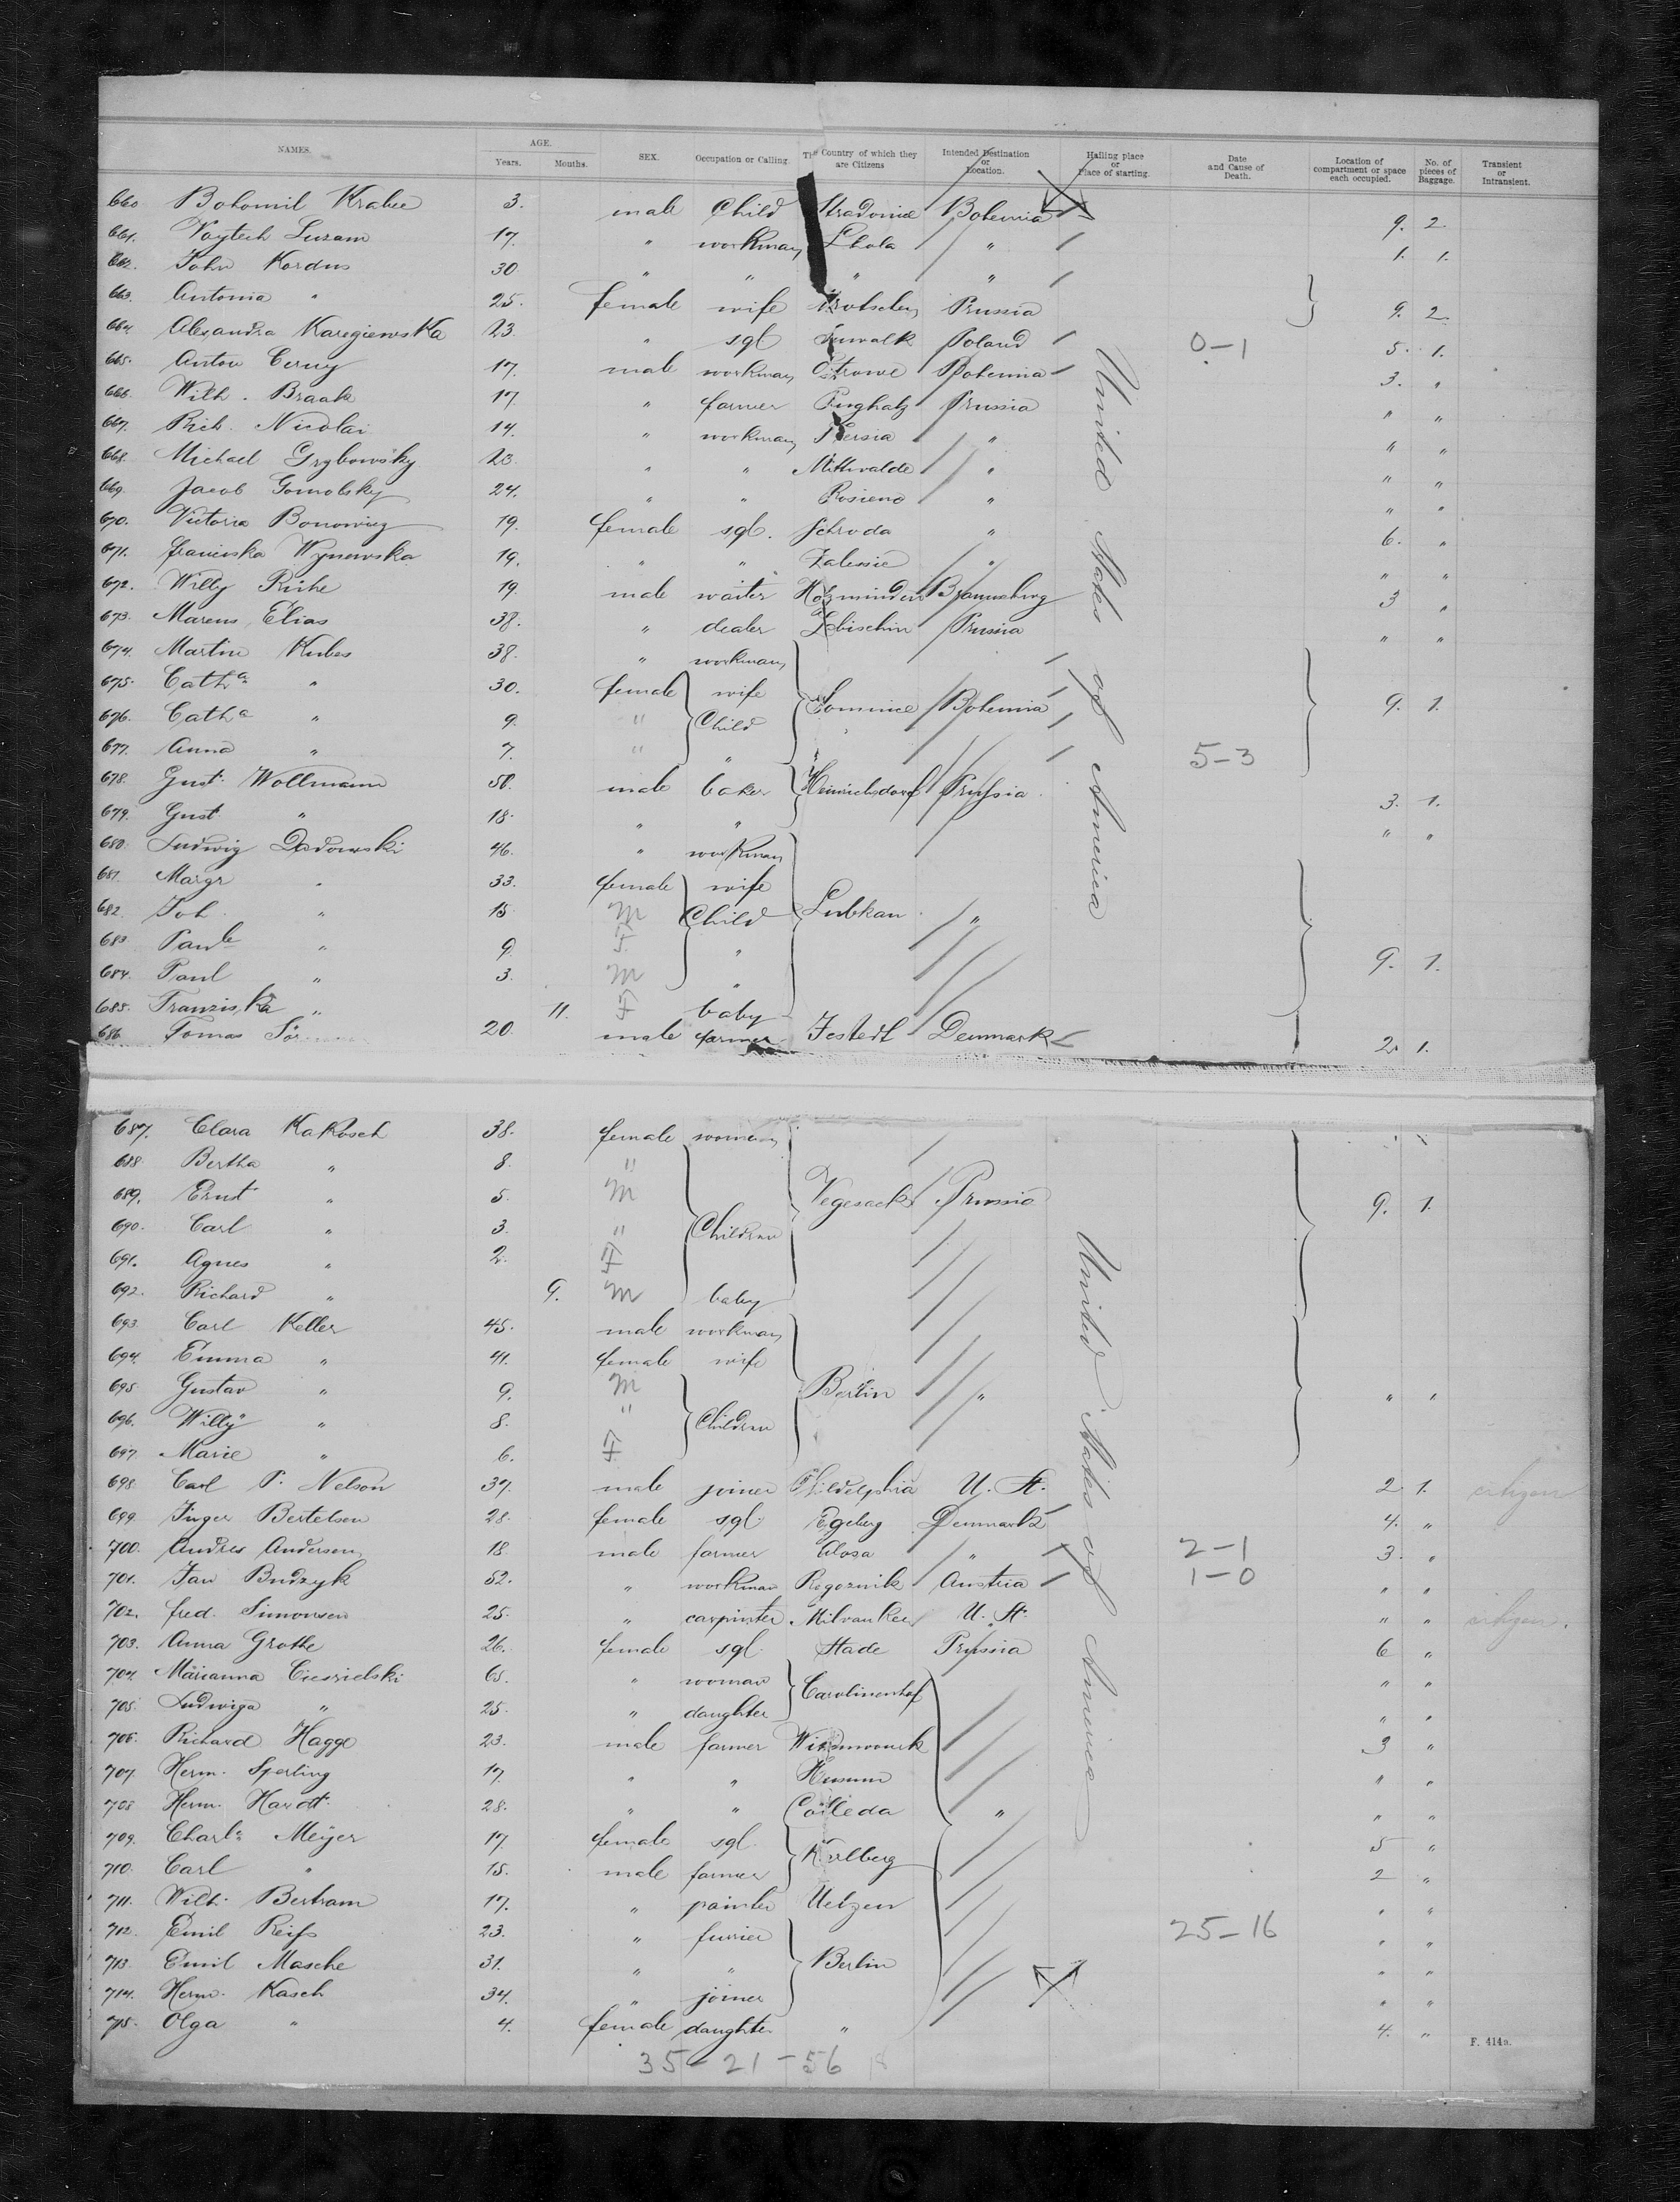 NAMES. AGE. Years. Months. SEX. Occupation or Calling. The Country of which they are Citizens Intended Destination or Location. Hailing place or Place of starting. Date and Cause of Death. Location of compartment or space each occupied. No. of pieces of Baggage. Transient or Intransient.
660. Bohomil 3. male Child Bohemia 9. 2
661. Voytech 17. " workman Lhota " 1. 1.
662. John Kordus 30. " " " "
663. Antonia " 25. female wife Prussia 9. 2.
664. Alexandra 23. " sgl Suwalk Poland 0-1 5. 1.
665. Anton Cerny 17. male workman Bohemia 3. "
666. Wilh. Braak 17. " farmer Prussia " "
667. Rich. Nicolai 14. " workman " " "
668. Michael Grybowsky 23. " " Mittwalde " " "
669. Jacob Gomolsky 24. " " " " "
670. Victoria 19. female sgl. Schroda " 6. "
671. Franciska 19. " " Zalesie " " "
672. Willy 19. male waiter Holzminden 3 "
673. Marcus Elias 38. " dealer Prussia " "
674. Martin Kubes 38. " workman
675. Catha " 30. female wife Lomnice Bohemia 9. 1.
676. Catha " 9. " Child
677. Anna " 7. " " 5-3
678. Gust. Wollmann 50. male baker Heinrichsdorf Prussia 3. 1.
679. Gust. " 18. " " " "
680. Ludwig Dedowski 46. " workman
681. Margr " 33. female wife
682. Joh. " 15 M Child Lubkau "
683. Paule " 9. F. " 9. 1.
684. Paul " 3. M "
685. Franziska " 11. F baby
686. Tomas 20. male farmer Jestedt Denmark 2. 1.
687. Clara Kakosch 38. female woman
688. Bertha " 8. "
689. Ernst " 5. M Vegesack Prussia 9. 1.
690. Carl " 3. " Children
691. Agnes " 2. F
692. Richard " 9. M baby
693. Carl Keller 45. male workman
694. Emma " 41. female wife
695. Gustav " 9. M Berlin " " "
696. Willy " 8. " Children
697. Marie " 6. F
698. Carl P. Nelson 37. male joiner Phildelphia U. St. 2 1. citizen
699. Inger Bertelsen 28. female sgl. Egeberg Denmark 4. "
700. Andres Andersen 18. male farmer " 2-1 3. "
701. Jan Budzyk 52. " workman Rogoznik Austria 1-0 " "
702. Fred. Simonsen 25. " carpinter Milvaukee U. St. " " citizen.
703. Anna Grothe 26. female sgl. Stade Prussia 6 "
704. Marianna Ciesrielski 65. " woman Carolinenhof " "
705. Ludwiga " 25. " daughter " "
706. Richard Hagge 23. male farmer 3 "
707. Herm. Sperling 17. " " Husum " "
708. Herm. Hardt. 28. " " Cölleda " " "
709. Charle Meyer 17 female sgl. 5 "
710. Carl " 15. male farmer 2 "
711. Wilh. Bertram 17. " painter Uelzen " "
712. Emil Reifs 23. " furrier 25-16 " "
713. Emil Masche 31. " " Berlin " "
714. Herm. Kasch 34. " joiner " "
715. Olga " 4. female daughter " 4. "
United States of America
United States of America
F. 414a.
35-21-56